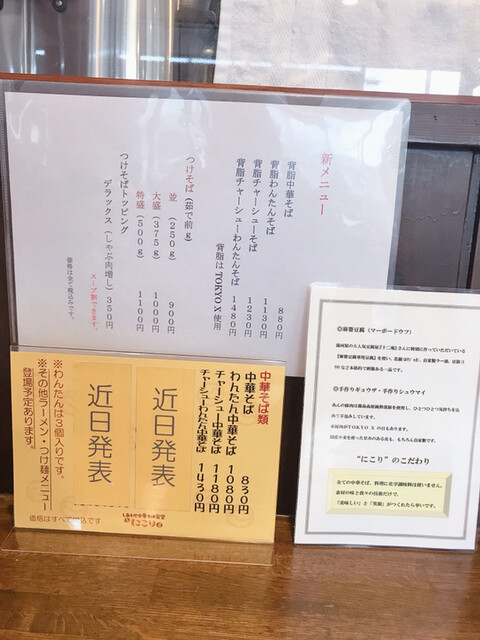 新メニュー
背脂中華そば 880円
背脂わんたんそば 1130円
背脂チャーシューそば 1230円
背脂チャーシューわんたんそば 1480円
背脂はTOKYO X使用
つけそば(茹で前g)
並 (250g) 900円
大盛 (375g) 1000円
特盛 (500g) 1100円
つけそばトッピング
デラックス (しゃぶ肉増し) 350円
スープ割できます。
価格は全て税込みです。
中華そば類
中華そば 830円
わんたん中華そば 1080円
チャーシュー中華そば 1180円
チャーシューわんたん中華そば 1430円
近日発表
近日発表
※わんたんは3個入りです。
※その他ラーメン・つけ麺メニュー
登場予定あります。
価格はすべて税込です
にこり
◎麻婆豆腐(マーボードウフ)
◎手作りギョウザ・手作りシュウマイ
“にこり”のこだわり
全ての中華そば、料理に化学調味料は使いません。
素材の味と我々の技術だけで、
「美味しい」と「笑顔」がつくれたら幸いです。